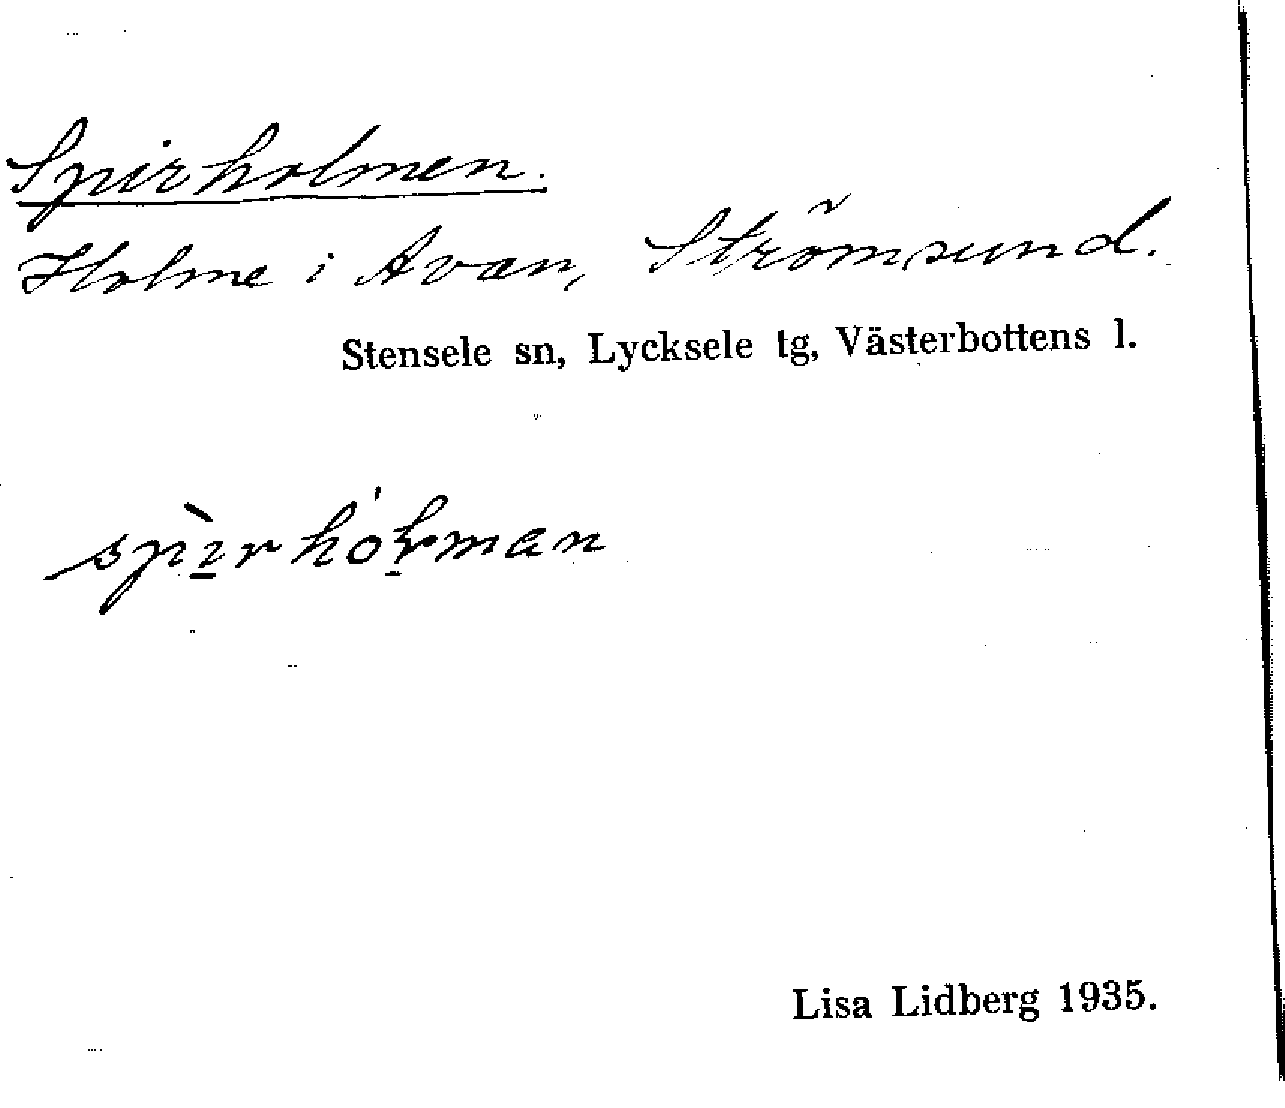 Spirholmen.
Holme i Avan, Strömsund.
Stensele sn, Lycksele tg, Västerbottens l.
Lisa Lidberg 1935.